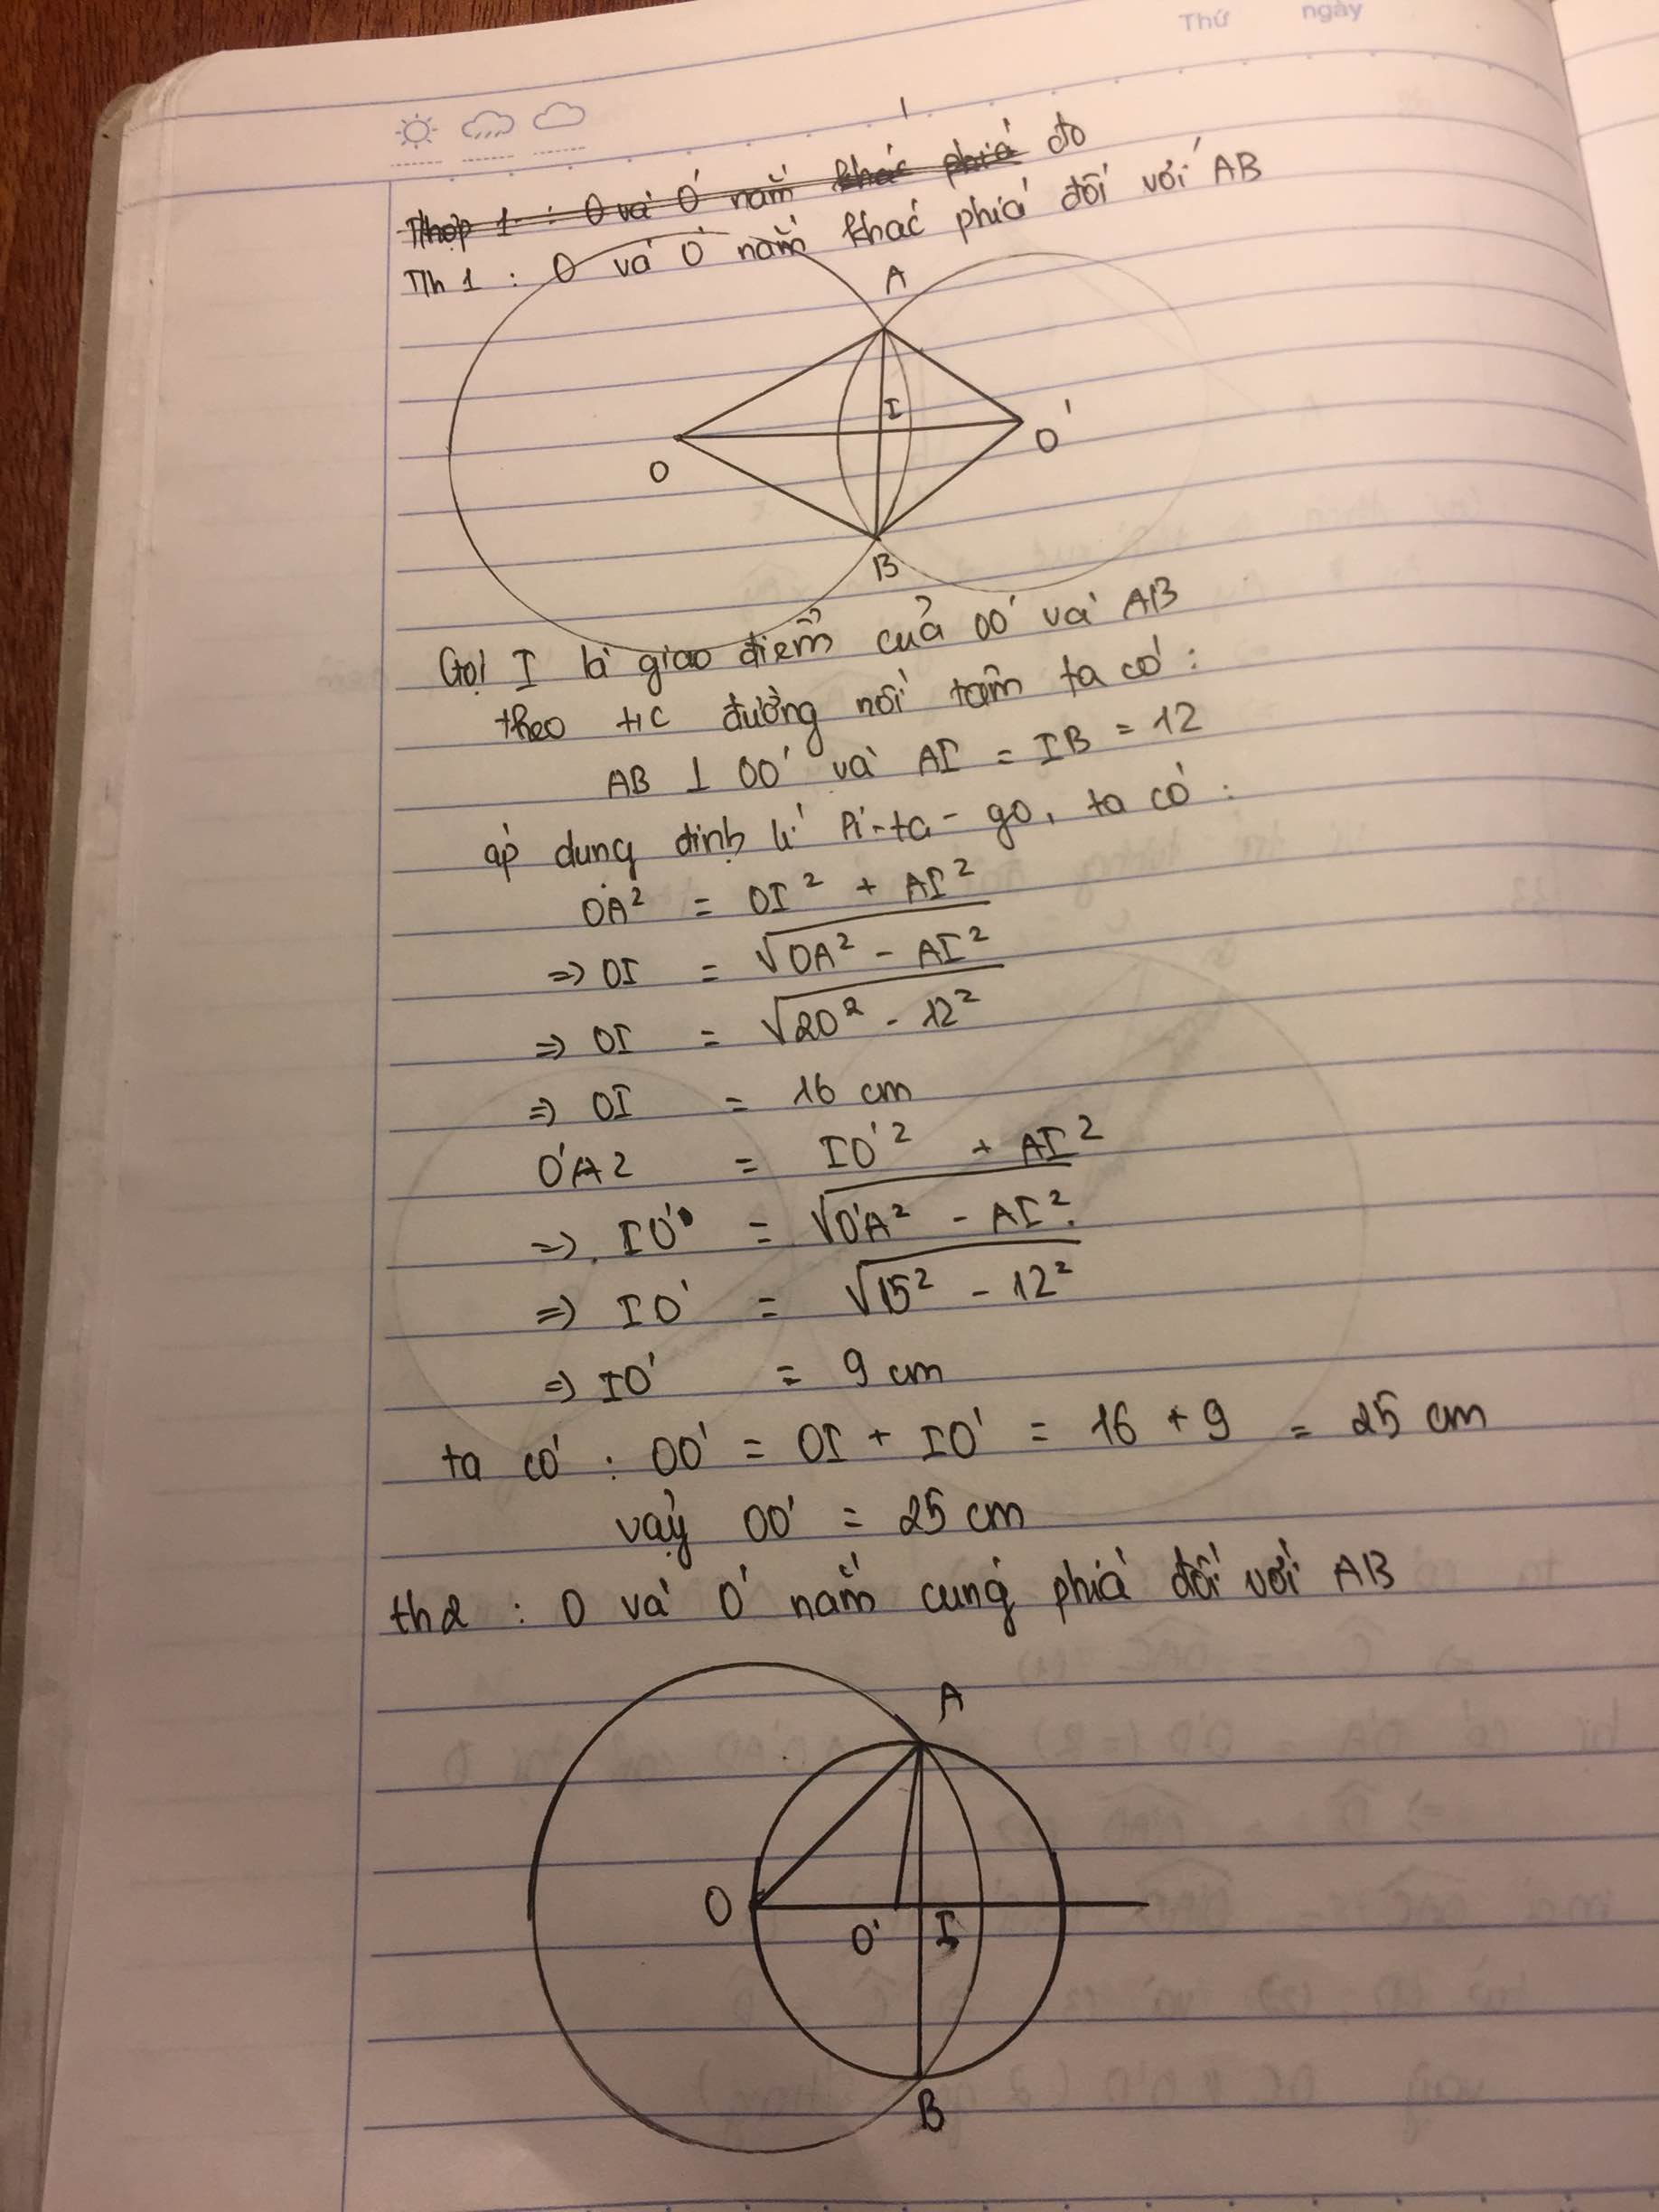 Thứ ngày
Thợp 1 : O và O' nằm khác phiá đo
Th 1 : O và O' nằm khác phiá đối với AB
A
I
O
O'
B
Gọi I là giao điểm của OO' và AB
theo t/c đường nối tâm ta có :
AB ⊥ OO' và AI = IB = 12
áp dụng định lí Pi-ta-go, ta có :
OA² = OI² + AI²
=> OI = √OA² - AI²
=> OI = √20² - 12²
=> OI = 16 cm
O'A2 = IO'² + AI²
=> IO' = √O'A² - AI²
=> IO' = √15² - 12²
=> IO' = 9 cm
ta có : OO' = OI + IO' = 16 + 9 = 25 cm
vậy OO' = 25 cm
th2 : O và O' nằm cùng phiá đối với AB
A
O
O'
I
B